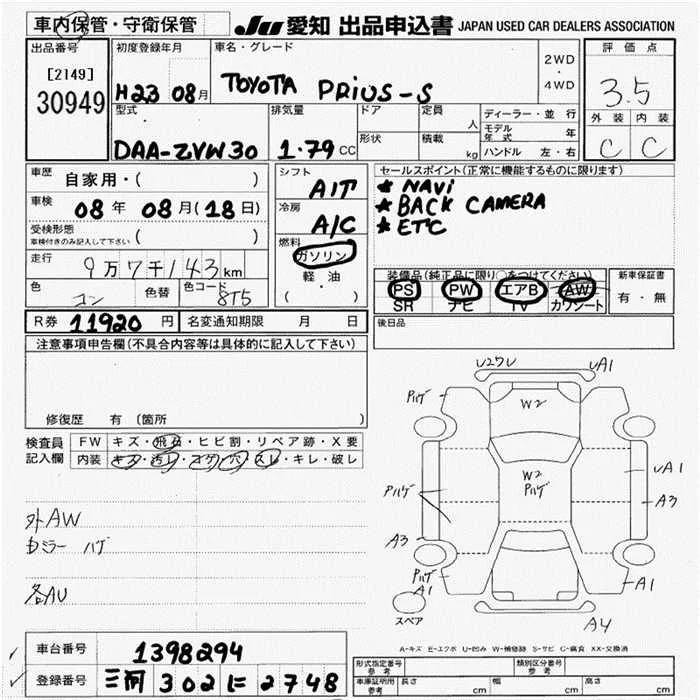 車内保管・守衛保管
JU 愛知 出品申込書 JAPAN USED CAR DEALERS ASSOCIATION
出品番号
[2149]
30949
初度登録年月
H23 08月
車名・グレード
TOYOTA PRIUS-S
2WD
・
4WD
評価点
3.5
外装 内装
C C
型式
DAA-ZVW30
排気量
1.79 CC
ドア
定員
人
形状
積載
kg
ディーラー・並行
モデル年式 年
ハンドル 左・右
車歴
自家用・( )
車検
08年 08月(18日)
受検形態
車検付きのみ記入して下さい ( )
走行
9万7千143km
色
コン
色替
色コード
8T5
シフト
A/T
冷房
A/C
燃料
ガソリン
・
軽・油
( )
セールスポイント(正常に機能するものに限ります)
★ NAVi
★ BACK CAMERA
★ ETC
装備品(純正品に限り○をつけてください)
PS PW エアB AW
SR ナビ TV カワシート
新車保証書
有・無
後日品
R券 11920 円
名変通知期限 月 日
注意事項申告欄(不具合内容等は具体的に記入して下さい)
修復歴 有 〔箇所 〕
検査員
記入欄
FW キズ・飛石・ヒビ割・リペア跡・X要
内装 キズ・汚レ・コゲ・穴・スレ・キレ・破レ
外AW
ミラー ハゲ
各AU
U27レ UA1
Pハゲ
W2
W2
Pハゲ
Pハゲ
UA1
A3
A3
Pハゲ
A1
A1
スペア
A4
A-キズ E-エクボ U-凹み W-補修跡 S-サビ C-腐食 XX-交換済
車台番号
1398294
登録番号
三河 302 に 2748
形式指定番号
参考
類別区分番号
参考
車庫証明用
参考
長さ cm
幅 cm
高さ cm